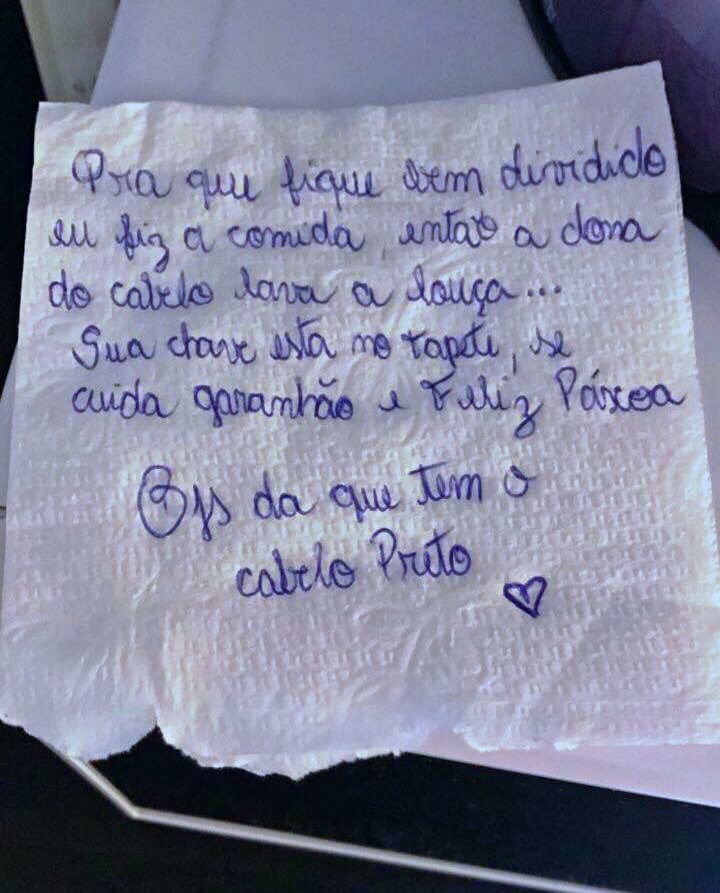 Pra que fique bem dividido
eu fiz a comida, então a dona
do cabelo lava a louça...
Sua chave esta no tapete, se
cuida garanhão e Feliz Páscoa
Bjs da que tem o
cabelo Preto